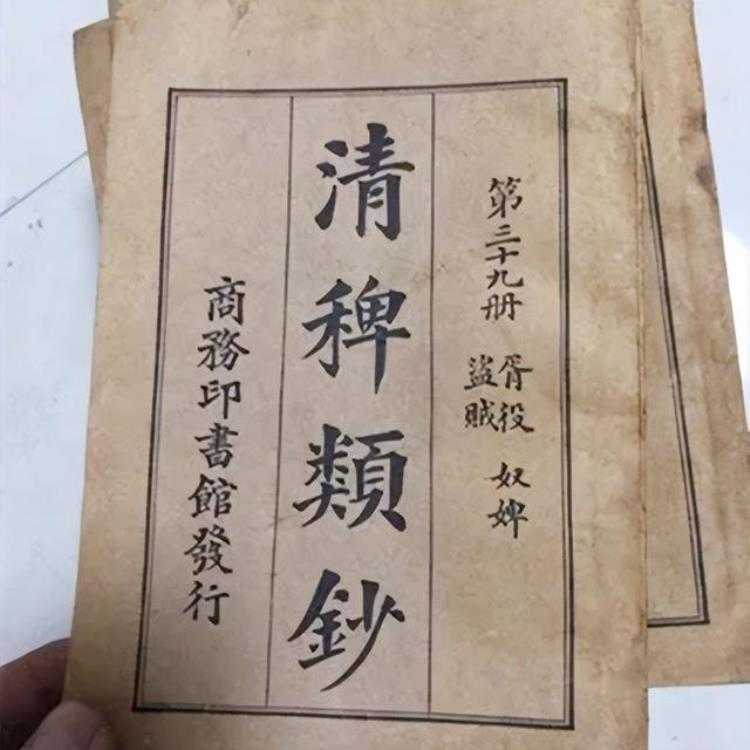 第三十九册
胥役
盜賊
奴婢
清稗類鈔
商務印書館發行